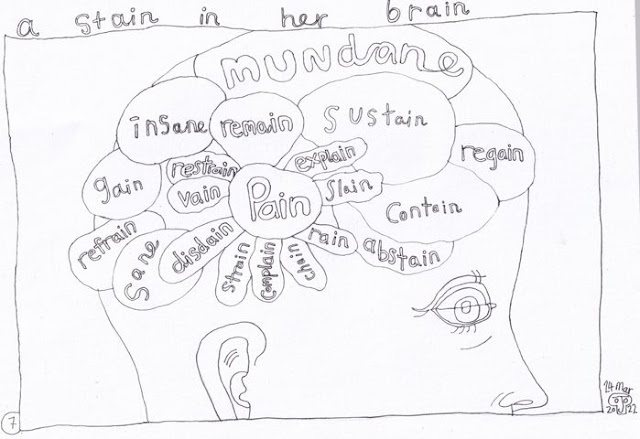 a stain in her brain
mundane
insane
remain
sustain
explain
regain
gain
restrain
vain
Pain
slain
Contain
refrain
sane
disdain
strain
complain
chain
rain
abstain
24 Mar
2022
7